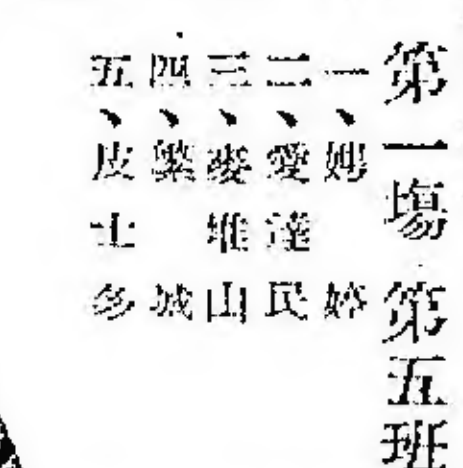 第一塲 第五班
一、娉婷
二、愛達民
三、麥堆山
四、繁城
五、皮士多